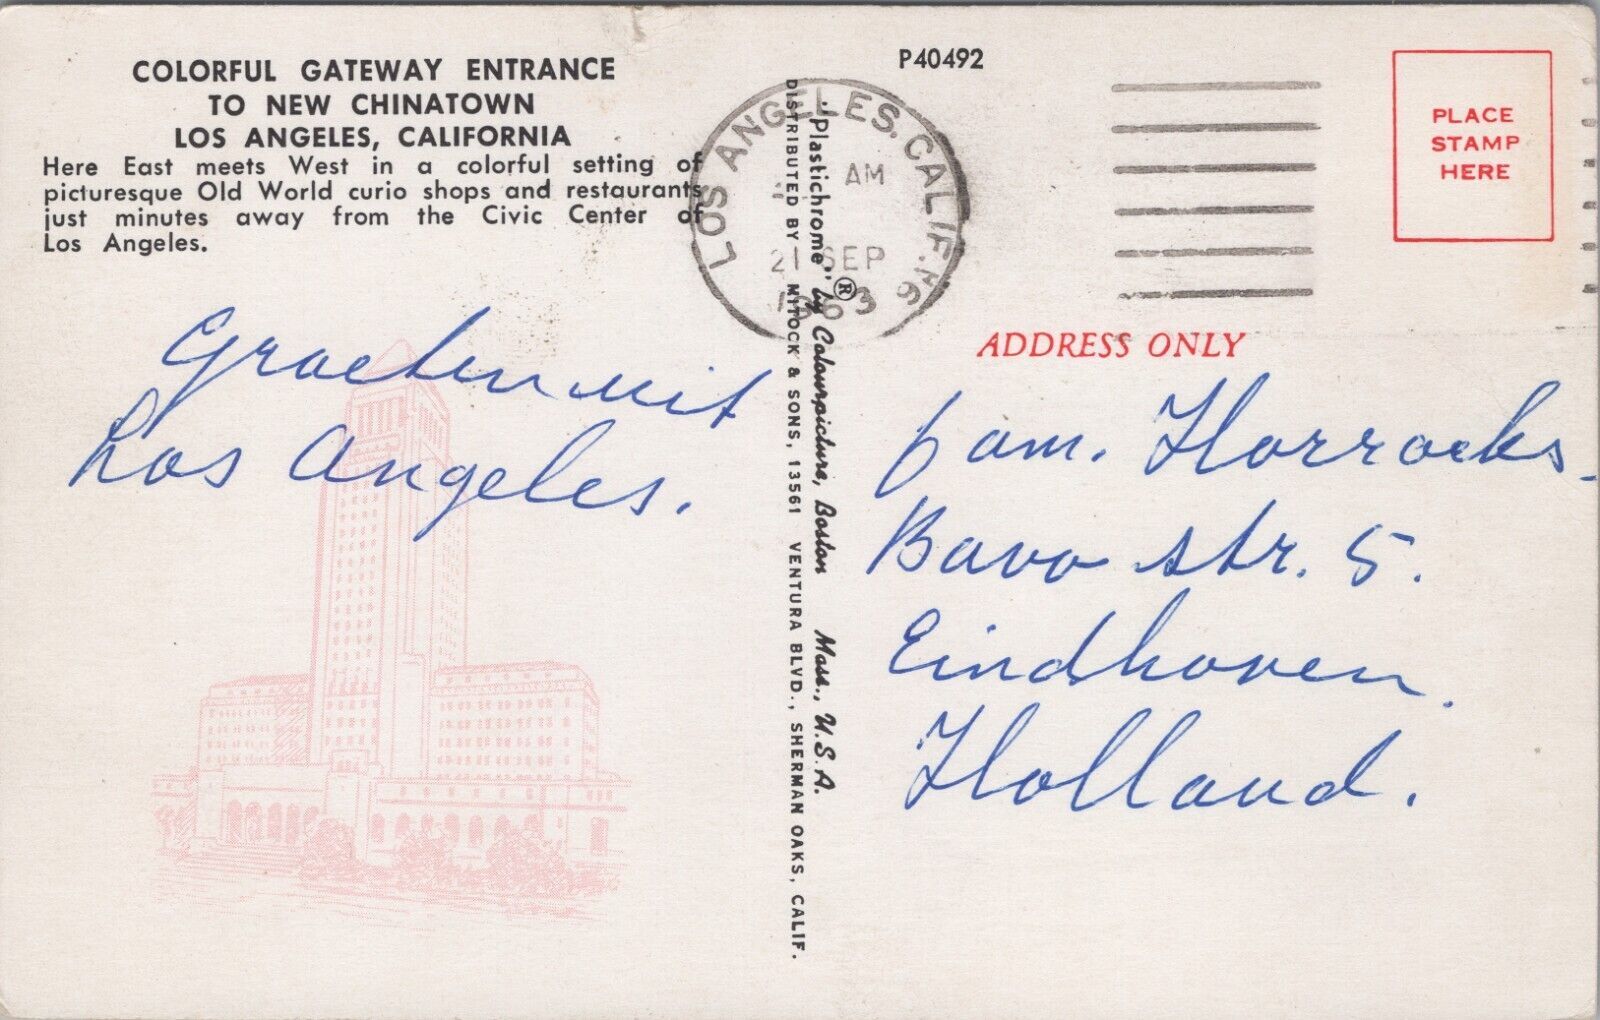 COLORFUL GATEWAY ENTRANCE
TO NEW CHINATOWN
LOS ANGELES, CALIFORNIA
Here East meets West in a colorful setting of
picturesque Old World curio shops and restaurants
just minutes away from the Civic Center of
Los Angeles.
Graeten uit
Los Angeles.
"Plastichrome"® by Colourpicture, Boston Mass., U.S.A.
DISTRIBUTED BY MITOCK & SONS, 13561 VENTURA BLVD., SHERMAN OAKS, CALIF.
P40492
LOS ANGELES, CALIF.
AM
21 SEP
1963
PLACE
STAMP
HERE
ADDRESS ONLY
fam. Horrocks.
Bavo str. 5.
Eindhoven.
Holland.